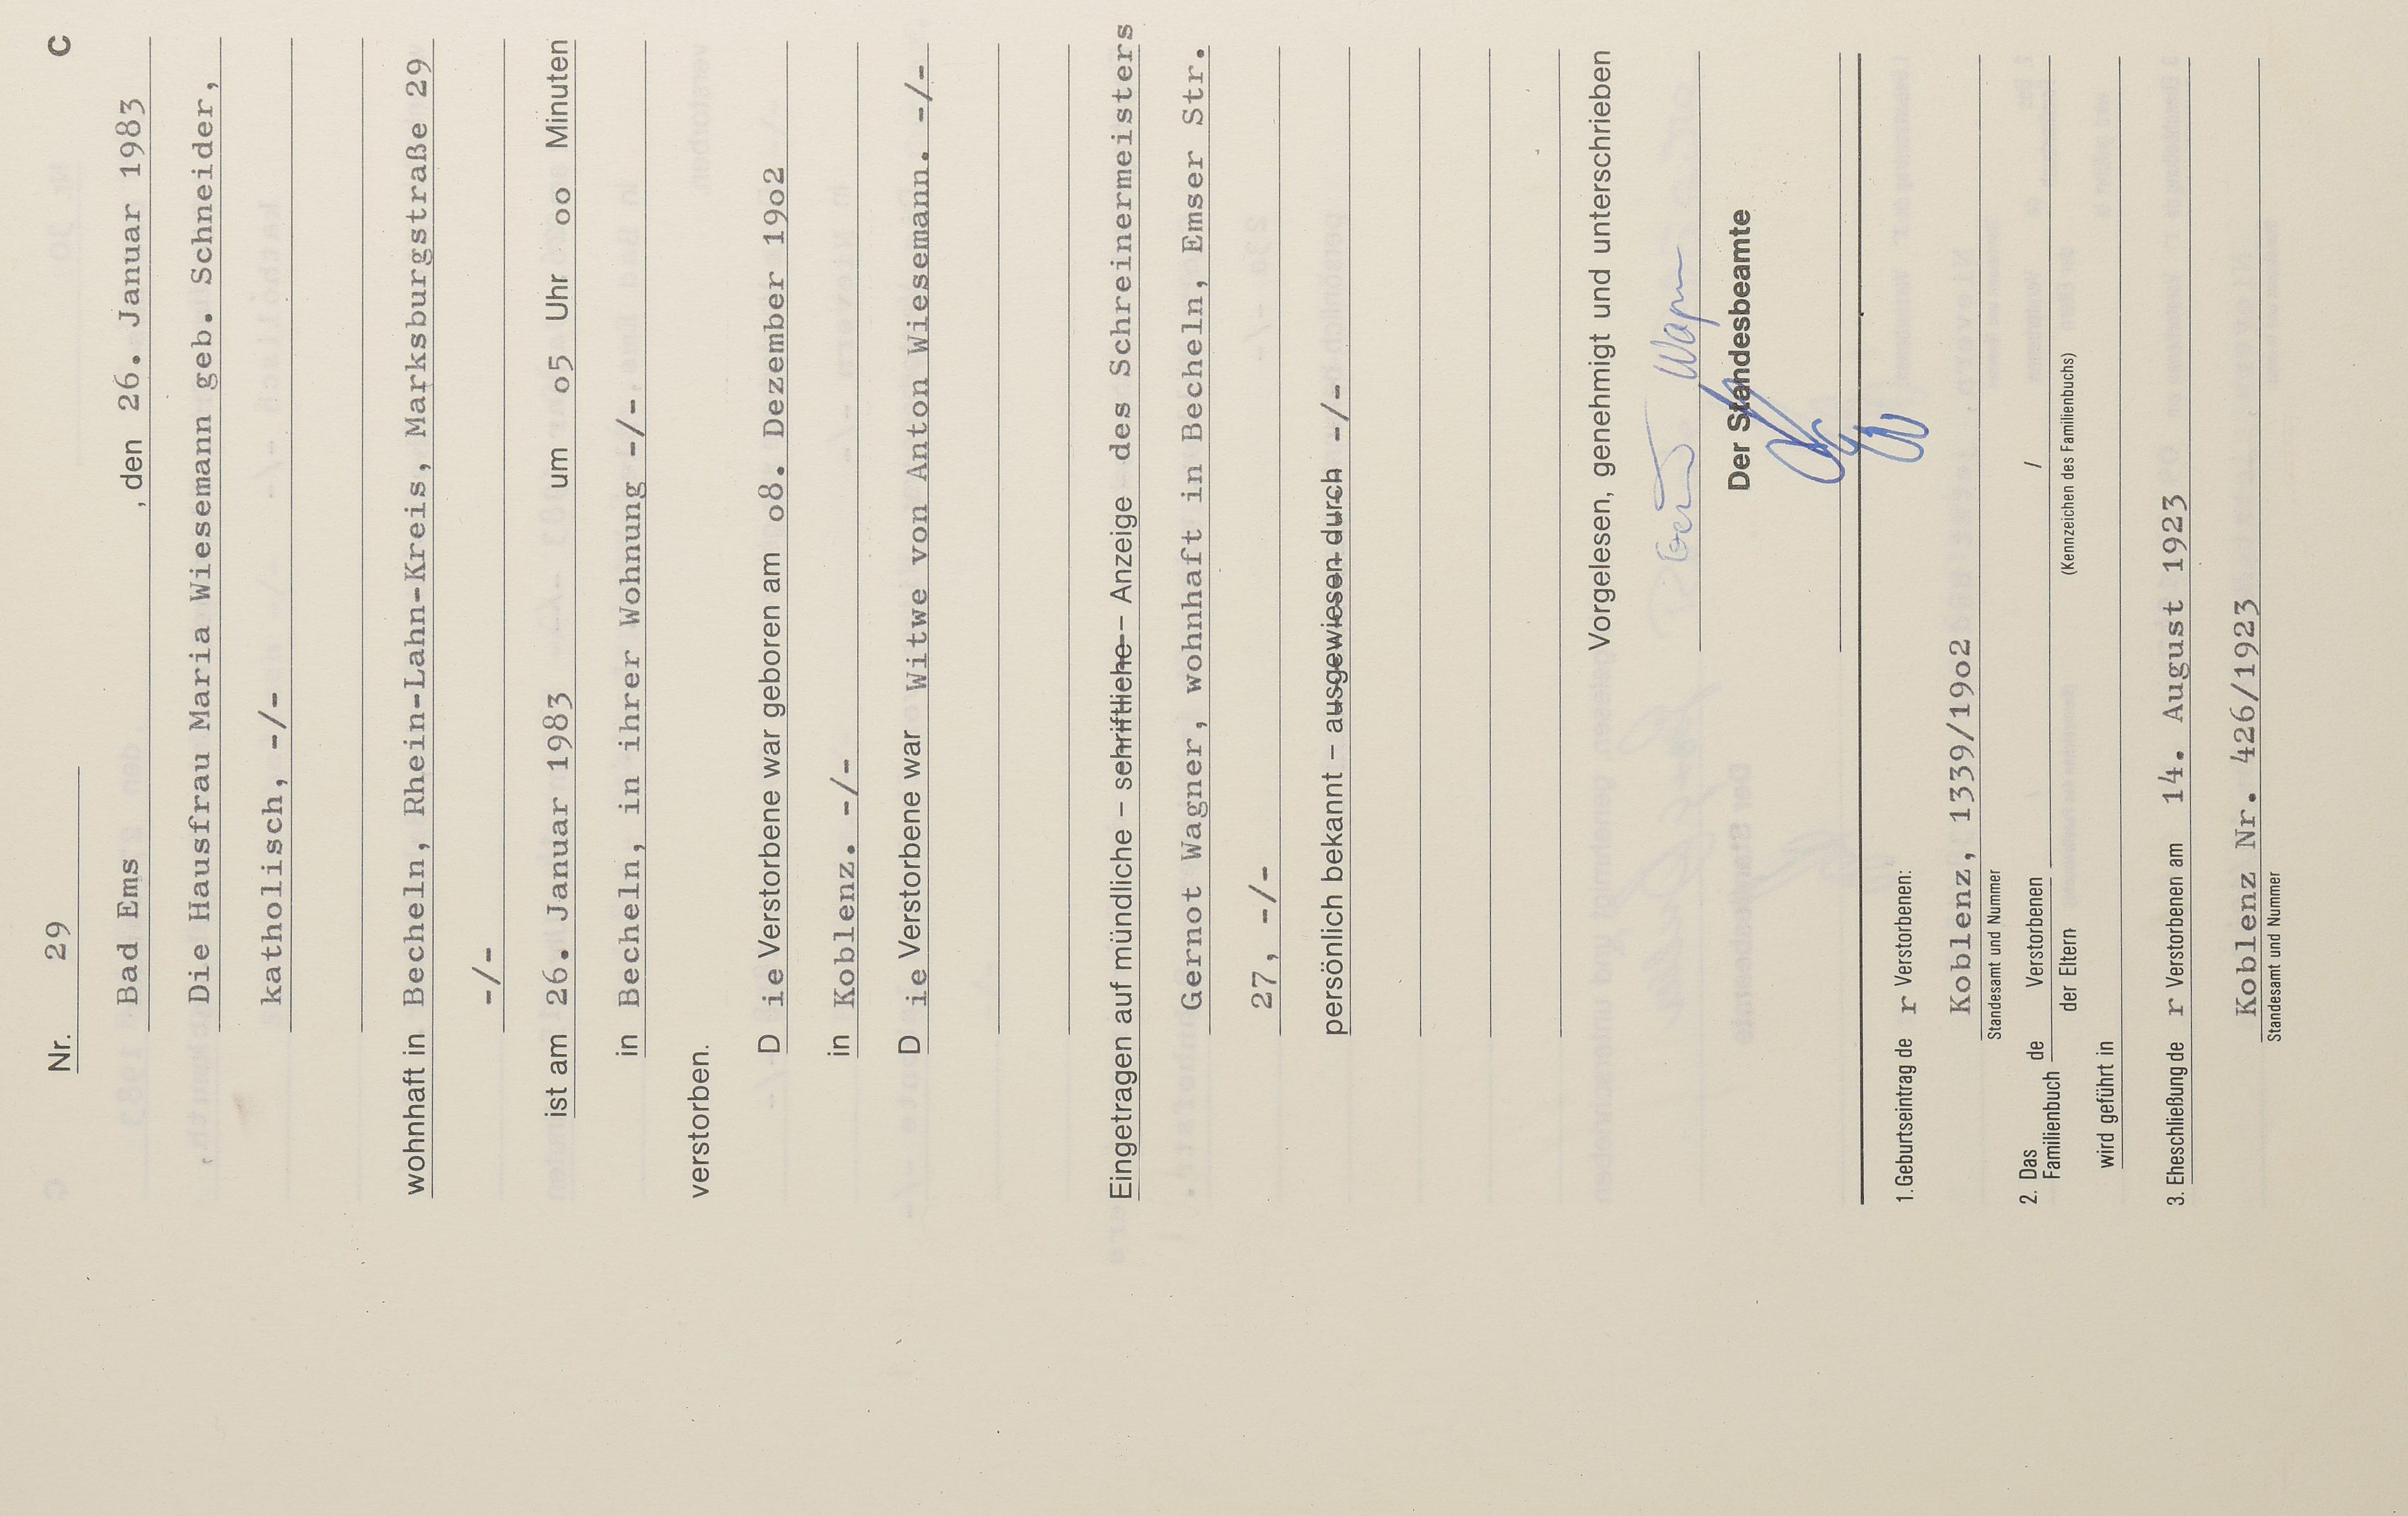 Nr. 29 C
Bad Ems , den 26. Januar 1983
Die Hausfrau Maria Wiesemann geb. Schneider,
katholisch, -/-
wohnhaft in Becheln, Rhein-Lahn-Kreis, Marksburgstraße 29
-/-
ist am 26. Januar 1983 um o5 Uhr oo Minuten
in Becheln, in ihrer Wohnung -/-
verstorben.
D ie Verstorbene war geboren am o8. Dezember 19o2
in Koblenz. -/-
D ie Verstorbene war Witwe von Anton Wiesemann. -/-
Eingetragen auf mündliche – schriftliche – Anzeige des Schreinermeisters
Gernot Wagner, wohnhaft in Becheln, Emser Str.
27, -/-
persönlich bekannt – ausgewiesen durch -/-
Vorgelesen, genehmigt und unterschrieben
Gernot Wagner
Der Standesbeamte
1. Geburtseintrag de r Verstorbenen:
Koblenz, 1339/19o2
Standesamt und Nummer
2. Das Familienbuch de Verstorbenen /
der Eltern (Kennzeichen des Familienbuchs)
wird geführt in
3. Eheschließung de r Verstorbenen am 14. August 1923
Koblenz Nr. 426/1923
Standesamt und Nummer